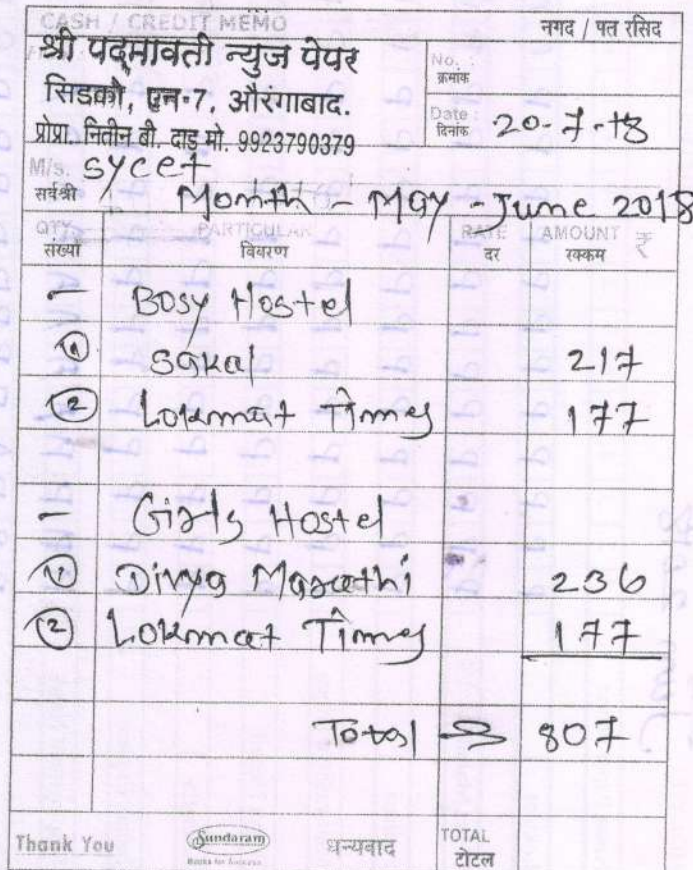 CASH / CREDIT MEMO
नगद / पत रसिद
श्री पद्मावती न्युज पेपर
सिडको, एन-7, औरंगाबाद.
प्रोप्रा. नितीन बी. दाडु मो. 9923790379
No. :
क्रमांक
Date :
दिनांक 20-7-18
M/s. sycet
सर्वश्री
Month - May - June 2018
QTY. PARTICULAR RATE AMOUNT ₹
संख्या विवरण दर रक्कम
- Bosy Hostel
① Sakal 217
② Lokmat Times 177
- Girls Hostel
① Divya Marathi 236
② Lokmat Times 177
Total 807
Thank You Sundaram धन्यवाद TOTAL
Books for Success टोटल